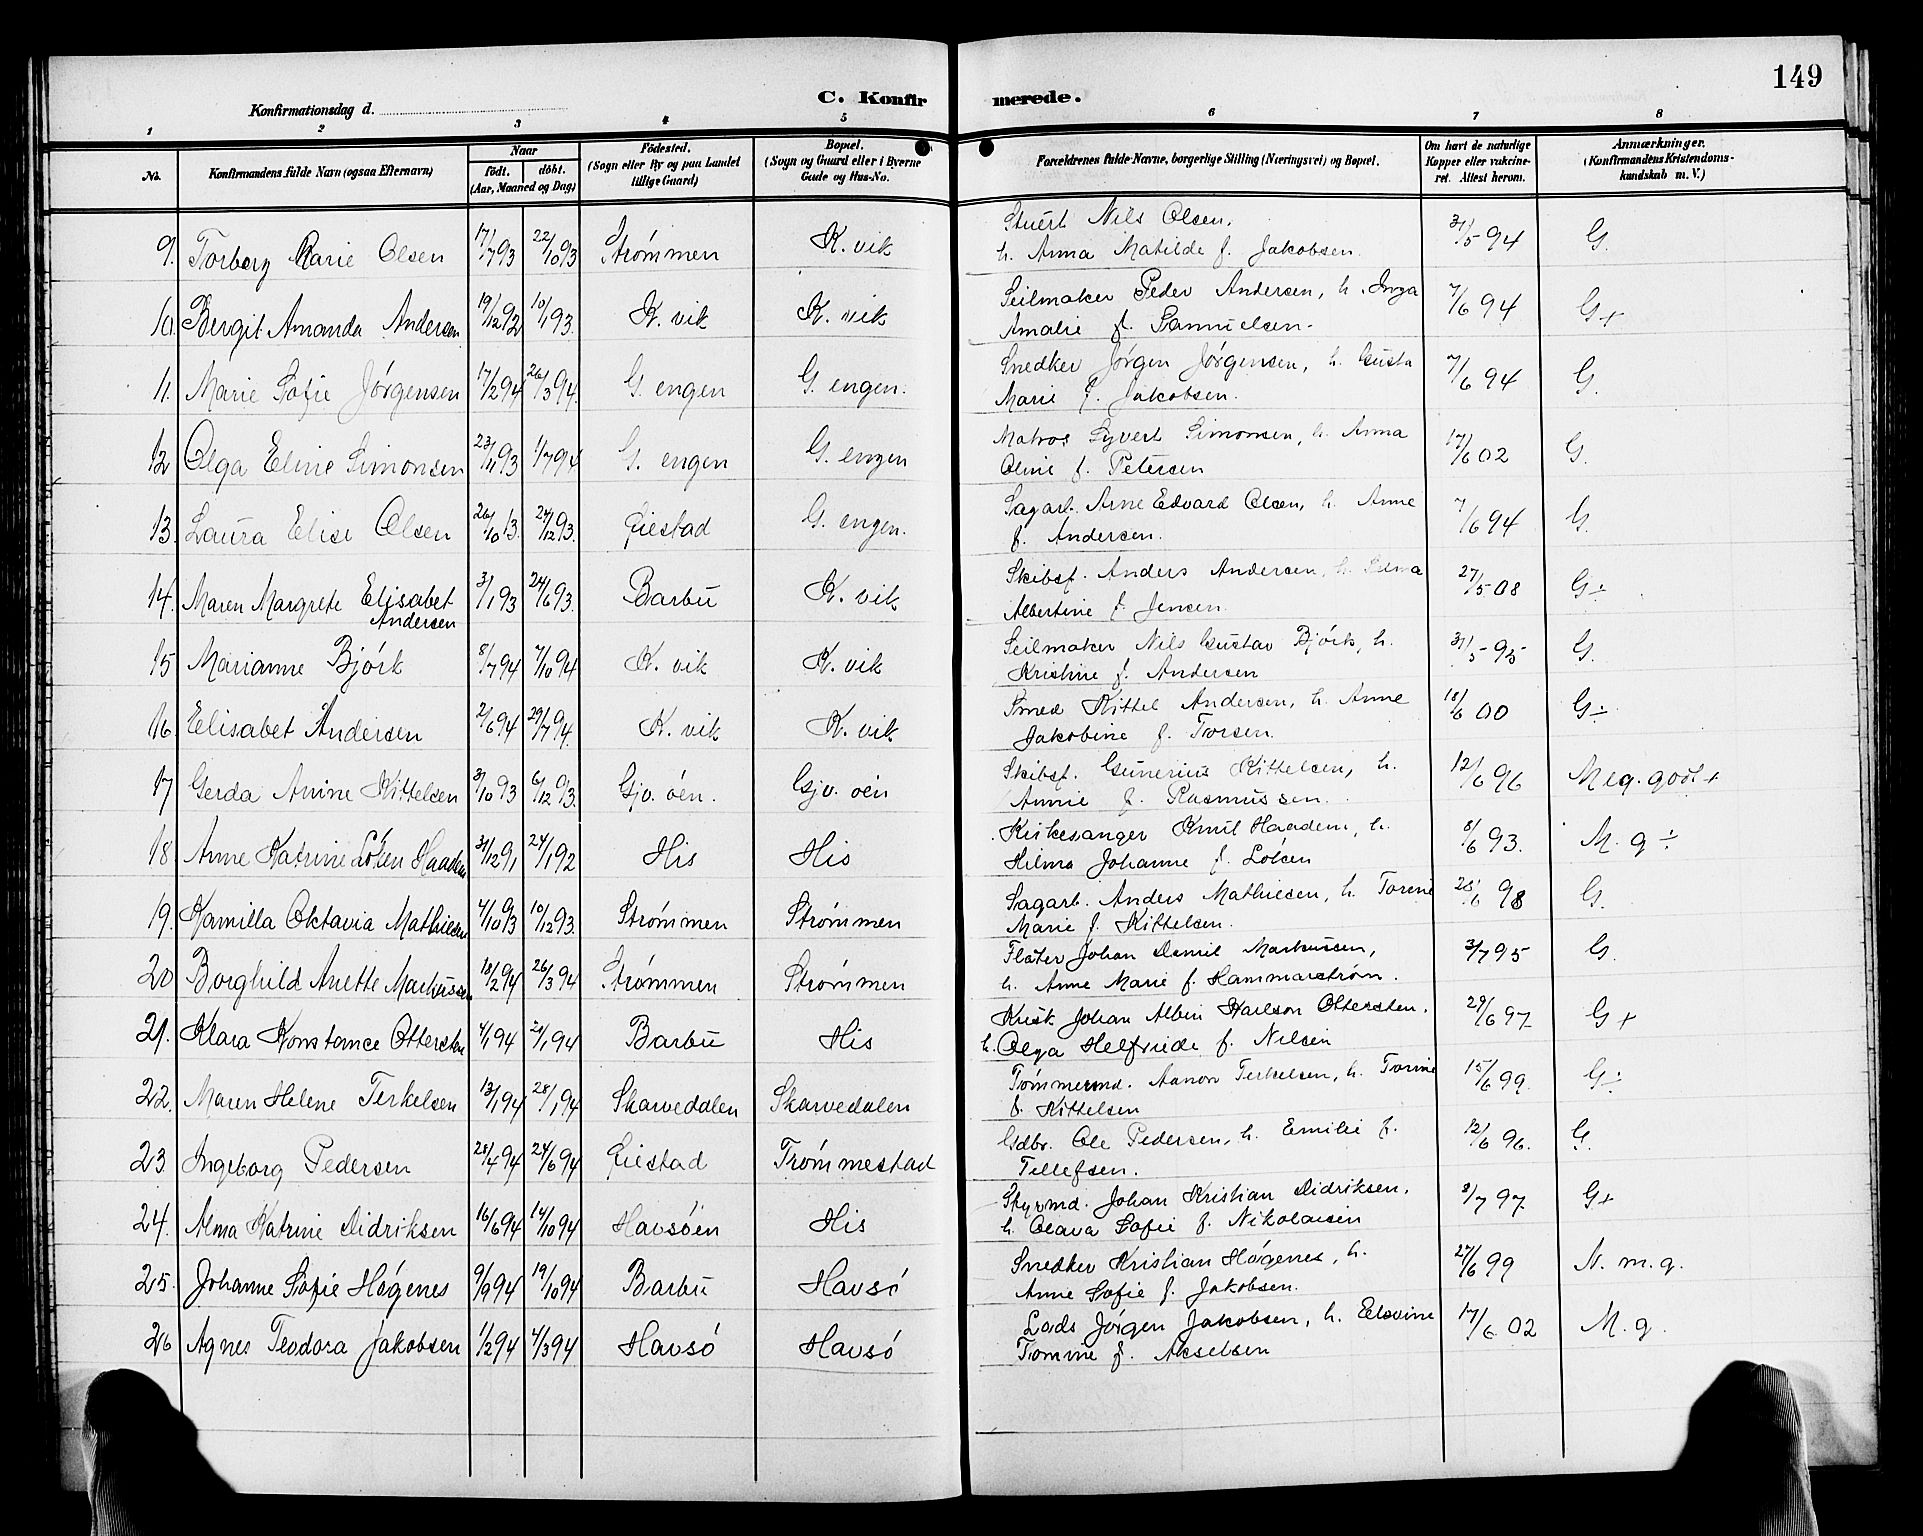 149
Konfirmationsdag d.
C. Konfirmerede.
1 2 3 4 5 6 7 8
No. Konfirmandens fulde Navn (ogsaa Efternavn) Naar født. døbt. (Aar, Maaned og Dag) Fødested. (Sogn eller By og paa Landet tillige Gaard) Bopæl. (Sogn og Gaard eller i Byerne Gade og Hus-No. Forældrenes fulde Navne, borgerlige Stilling (Næringsvei) og Bopæl. Om havt de naturlige Kopper eller vakcineret. Attest herom. Anmærkninger. (Konfirmandens Kristendomskundskab m. V.)
9. Torborg Marie Olsen 17/7 93 22/10 93 Strømmen K. vik Stuert Nils Olsen, 31/5 94 G.
h. Anna Matilde f. Jakobsen.
10. Bergit Amanda Andersen 19/12 92 10/1 93. K. vik K. vik Seilmaker Peder Andersen, h. Inga 7/6 94 G+
Amalie f. Samuelsen.
11. Marie Sofie Jørgensen 17/2 94 26/3 94. G. engen G. engen. Snedker Jørgen Jørgensen, h. Gusta 7/6 94 G.
Marie f. Jakobsen.
12 Olga Eline Simonsen 23/11 93 1/7 94 G. engen G. engen Matros Syvert Simonsen, h. Anna 17/6 02 G.
Oline f. Petersen
13. Laura Elise Olsen 26/10 13. 24/12 93. Eiestad G. engen. Sagarb. Arne Edvard Olsen, h. Anne 7/6 94 G.
f. Andersen.
14. Maren Margrete Elisabet 3/1 93 24/6 93. Barbu K. vik Skibsf. Anders Andersen, h. 27/5 08 G÷
Andersen Albertine f. Jensen
15 Marianne Bjørk 8/7 94 7/10 94 K. vik K. vik Seilmaker Nils Gustav Bjørk, h. 31/5 95 G.
Kristine f. Andersen
16. Elisabet Andersen 2/6 94 29/7 94. K. vik K. vik Smed Kittel Andersen, h. Anne 18/6 00 G÷
Jakobine f. Torsen.
17 Gerda Anine Kittelsen 3/10 93 6/12 93. Gjv. øen. Gjv. øen Skibsf. Gunerius Kittelsen, h. 12/6 96 Meg. godt+
Annie f. Rasmussen.
18. Anne Katrine Løken Haaden 31/12 91 24/1 92 His His Kirkesanger Knut Haaden, h. 8/6 93. M. g÷
Hilma Johanne f. Løken
19. Kamilla Oktavia Mathiesen 4/10 93 10/12 93. Strømmen Strømmen Sagarb. Anders Mathiesen, h. Torine 28/6 98 G.
Marie f. Kittelsen.
20 Borghild Anette Markussen 18/2 94 26/3 94 Strømmen Strømmen Fløter Johan Daniel Markussen, 3/7 95 G.
h. Anne Marie f. Hammarstrøm.
21. Klara Konstance Ottersten 4/1 94 21/1 94 Barbu His Kusk Johan Albin Karlson Ottersten, 29/6 97 G+
h. Olga Helfriede f. Nilsen
22. Maren Helene Terkelsen 13/1 94 28/1 94 Skarvedalen Skarvedalen Tømmermd. Aanon Terkelsen, h. Torine 15/6 99. G÷
f. Kittelsen
23. Ingeborg Pedersen 28/4 94 24/6 94 Eiestad Trømmestad Gdbr. Ole Pedersen, h. Emilie f. 12/6 96. G.
Tellefsen.
24. Alma Katrine Didriksen 16/6 94 14/10 94 Havsøen His Styrmd. Johan Kristian Didriksen, 8/7 97. G+
h. Olava Sofie f. Nikolaisen
25. Johanne Sofie Høgenes 9/9 94 19/10 94 Barbu Havsø Snedker Kristian Høgenes, h. 27/6 99 N. m. g.
Anne Sofie f. Jakobsen.
26 Agnes Teodora Jakobsen 1/2 94 4/3 94 Havsø Havsø Lods Jørgen Jakobsen, h. Elevine 17/6 02 M. g.
Tomine f. Akselsen